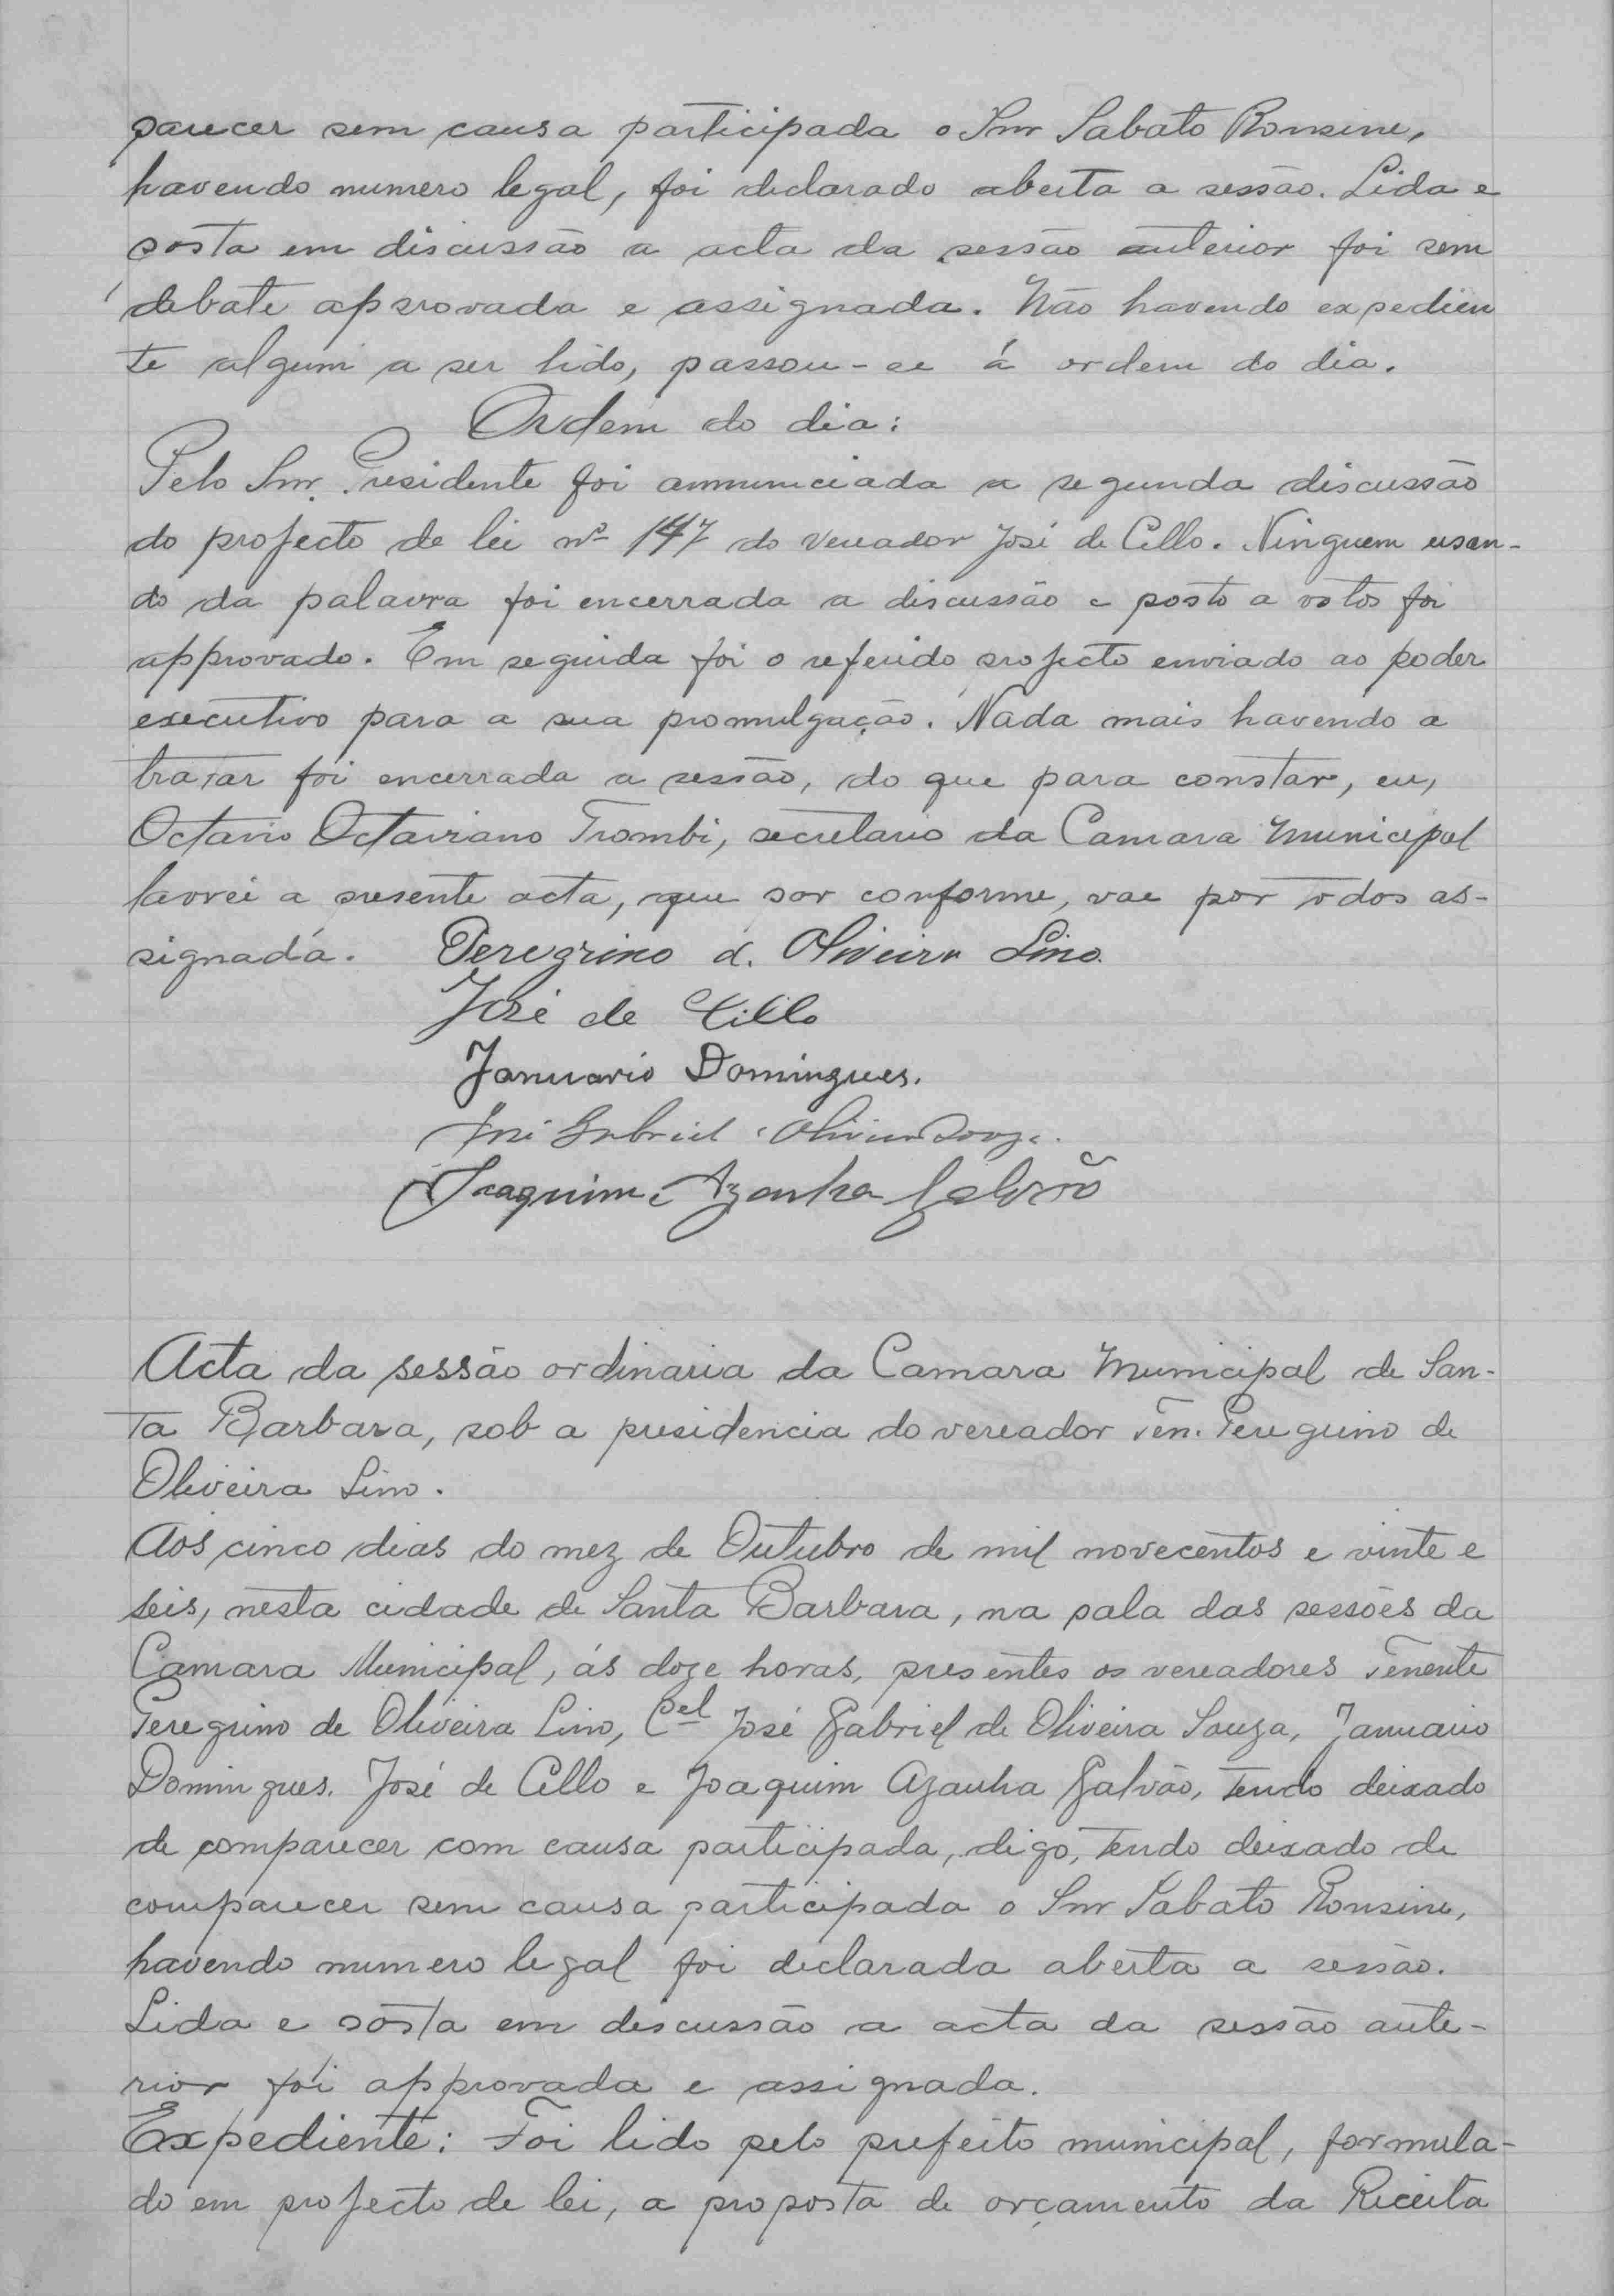 parecer sem causa participada o Snr Sabato Ronsine,
havendo numero legal, foi declarado aberta a sessão. Lida e
posta em discussão a acta da sessão anterior foi sem
debate approvada e assignada. Não havendo expedien
te algum a ser lido, passou-se á ordem do dia.
Ordem do dia:
Pelo Snr. Presidente foi annunciada a segunda discussão
do projecto de lei nº 147 do vereador José de Cillo. Ninguem usan-
do da palavra foi encerrada a discussão e posto a votos foi
approvado. Em seguida foi o referido projecto enviado ao poder
executivo para a sua promulgação. Nada mais havendo a
tratar foi encerrada a sessão, do que para constar, eu,
Octavio Octaviano Trombi, secretario da Camara Municipal
lavrei a presente acta, que por conforme, vae por todos as-
signada. Peregrino d. Oliveira Lino.
José de Cillo
Januario Domingues.
José Gabriel Oliveira Souza.
Joaquim Azanha Galvão
Acta da sessão ordinaria da Camara Municipal de San-
ta Barbara, sob a presidencia do vereador Ten. Peregrino de
Oliveira Lino.
Aos cinco dias do mez de Outubro de mil novecentos e vinte e
seis, nesta cidade de Santa Barbara, na sala das sessões da
Camara Municipal, ás doze horas, presentes os vereadores Tenente
Peregrino de Oliveira Lino, Cel José Gabriel de Oliveira Souza, Januario
Domingues. José de Cillo e Joaquim Azanha Galvão, tendo deixado
de comparecer com causa participada, digo, tendo deixado de
comparecer sem causa participada o Snr Sabato Ronsine,
havendo numero legal foi declarada aberta a sessão.
Lida e posta em discussão a acta da sessão ante-
rior foi approvada e assignada.
Expediente: Foi lido pelo prefeito municipal, formula-
do em projecto de lei, a proposta de orçamento da Receita